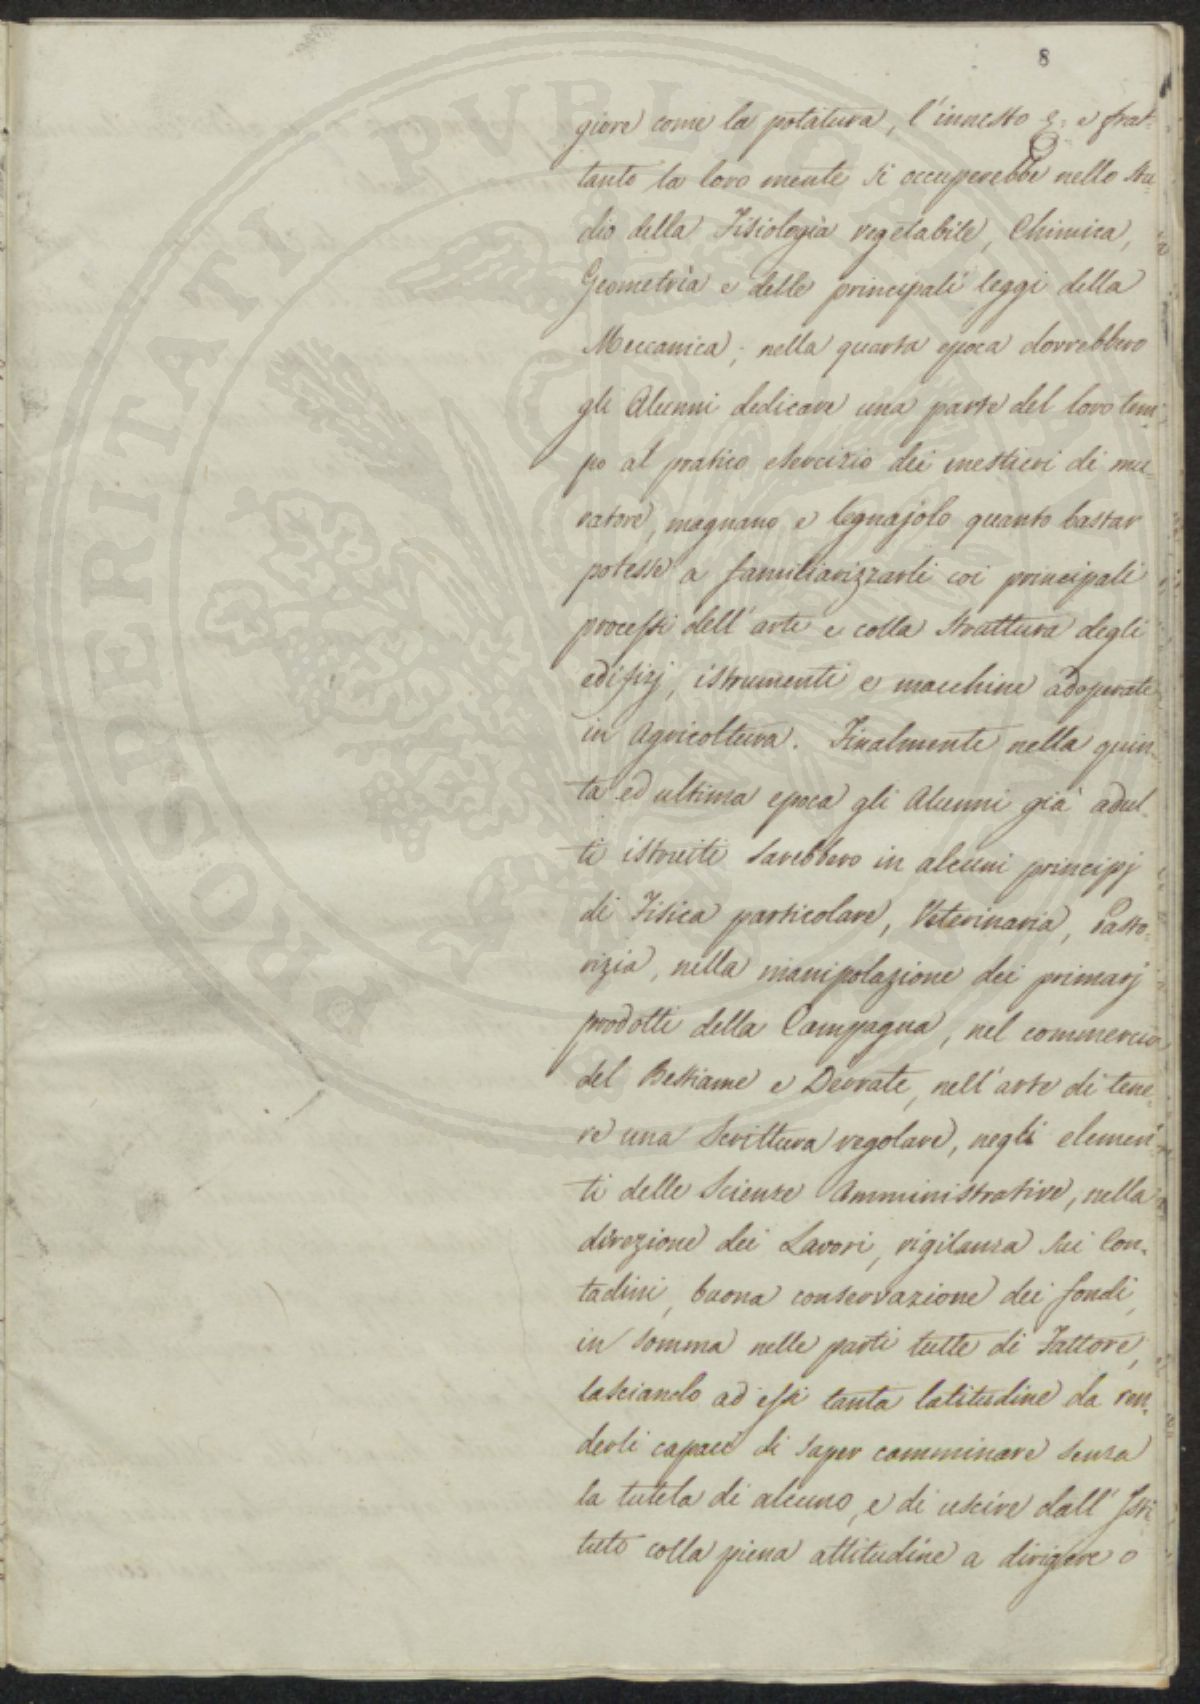 8
giore come la potatura, l'innesto &. e frat-
tanto la loro mente si occuperebbe nello stu-
dio della Fisiologia vegetabile, Chimica,
Geometria e delle principali leggi della
Meccanica; nella quarta epoca dovrebbero
gli Alunni dedicare una parte del loro tem-
po al pratico esercizio dei mestieri di mu-
ratore, magnano e legnajolo quanto bastar
potesse a familiarizzarli coi principali
processi dell'arte e colla struttura degli
edifizj, istrumenti e macchine adoperate
in Agricoltura. Finalmente nella quin-
ta ed ultima epoca gli Alunni già adul-
ti istruiti sarebbero in alcuni principj
di Fisica particolare, Veterinaria, Pasto-
rizia, nella manipolazione dei primarj
prodotti della Campagna, nel commercio
del Bestiame e Derrate, nell'arte di tene-
re una Scrittura regolare, negli elemen-
ti delle Scienze Amministrative, nella
direzione dei Lavori, vigilanza sui Con-
tadini, buona conservazione dei fondi,
in somma nelle parti tutte di Fattore,
lasciando ad essi tanta latitudine da ren-
derli capaci di saper camminare senza
la tutela di alcuno, e di uscire dall'Isti
tuto colla piena attitudine a dirigere o
PROSPERITATI PUBLICAE